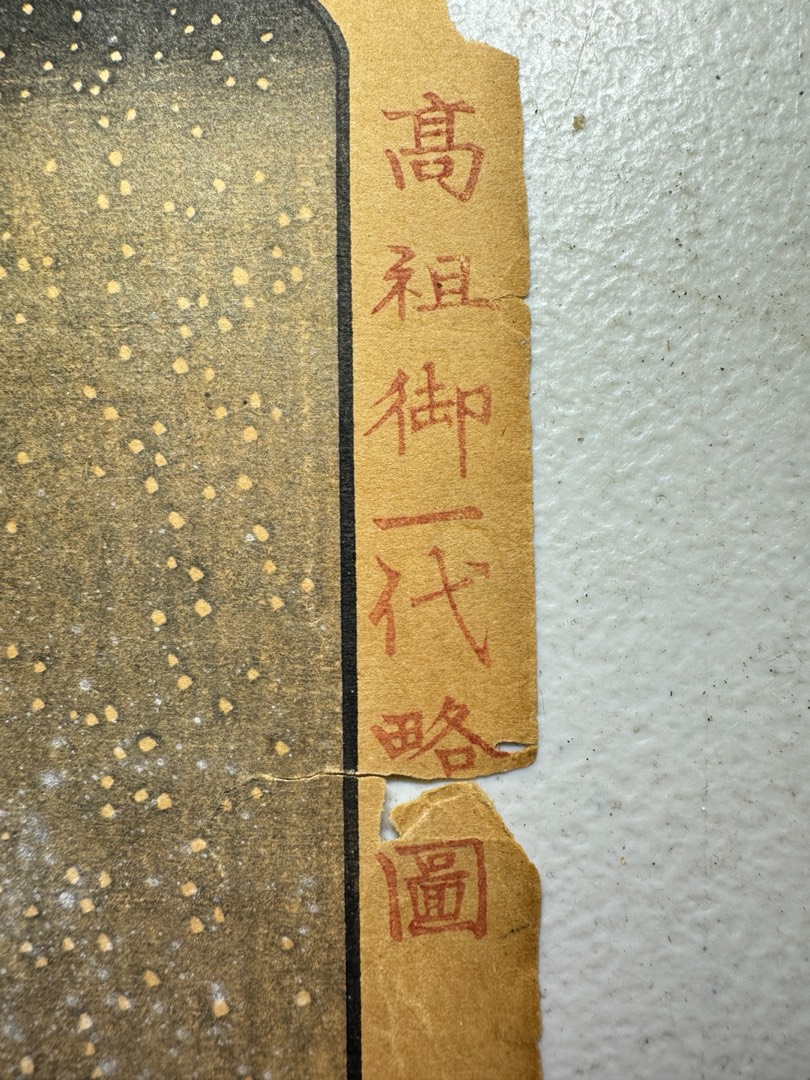 髙祖御一代略圖